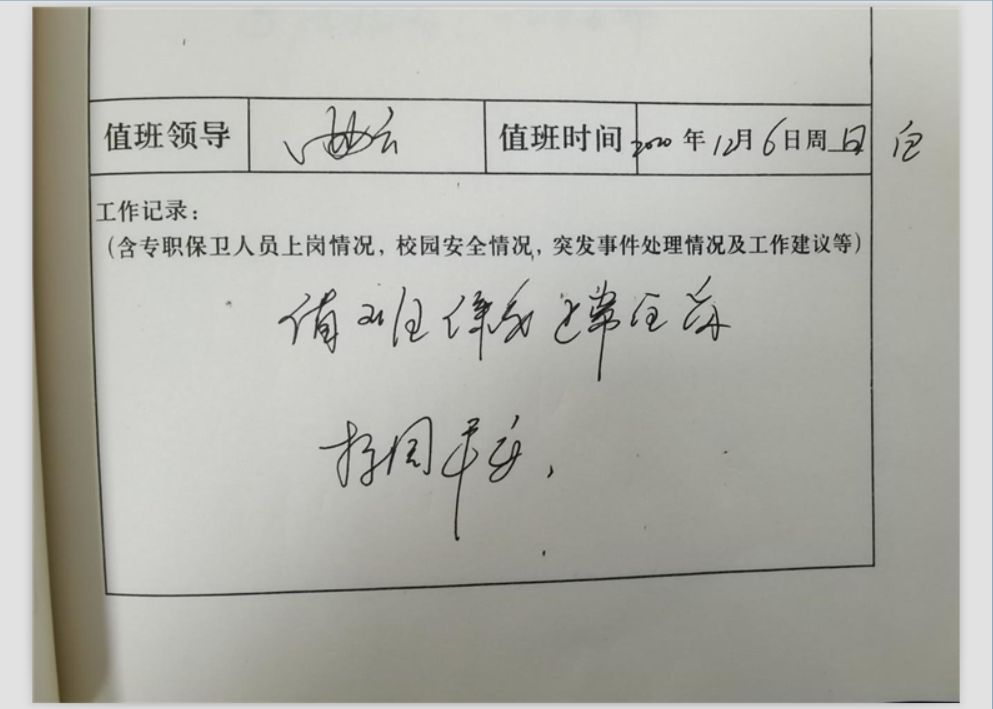 值班领导 值班时间 2020年12月6日周日
工作记录：
（含专职保卫人员上岗情况，校园安全情况，突发事件处理情况及工作建议等）
值班保安正常在岗
校园平安.